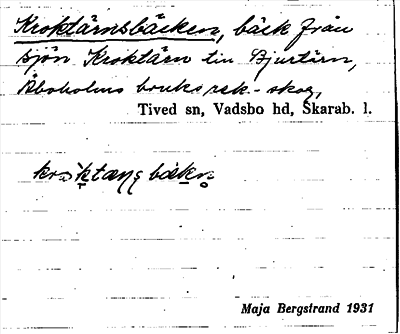 Kroktärnsbäcken, bäck från
sjön Kroktärn till Djurtärn,
Åboholms bruks rek.-skog,
Tived sn, Vadsbo hd, Skarab. l.
Maja Bergstrand 1931